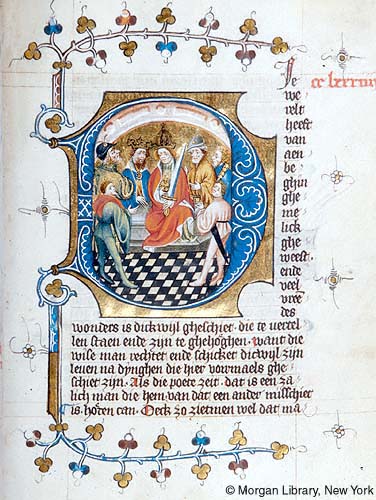 Ie
we
relt
heeft
van
aen
be
ghin
ghe
me
lick
ghe
weest
ende
veel
vree
des
wonders is dickwijl gheschiet. die te vertel
len staen ende zijn te ghehoghen. want die
wise man rechtet ende schicket dicwijl zijn
leuen na dinghen die hier vormaels ghe
schiet zijn. Als die poete zeit. dat is een za
lich man die hem van dat een ander misschiet
is hoten can. Oeck zo zietmen wel dat ma
© Morgan Library, New York